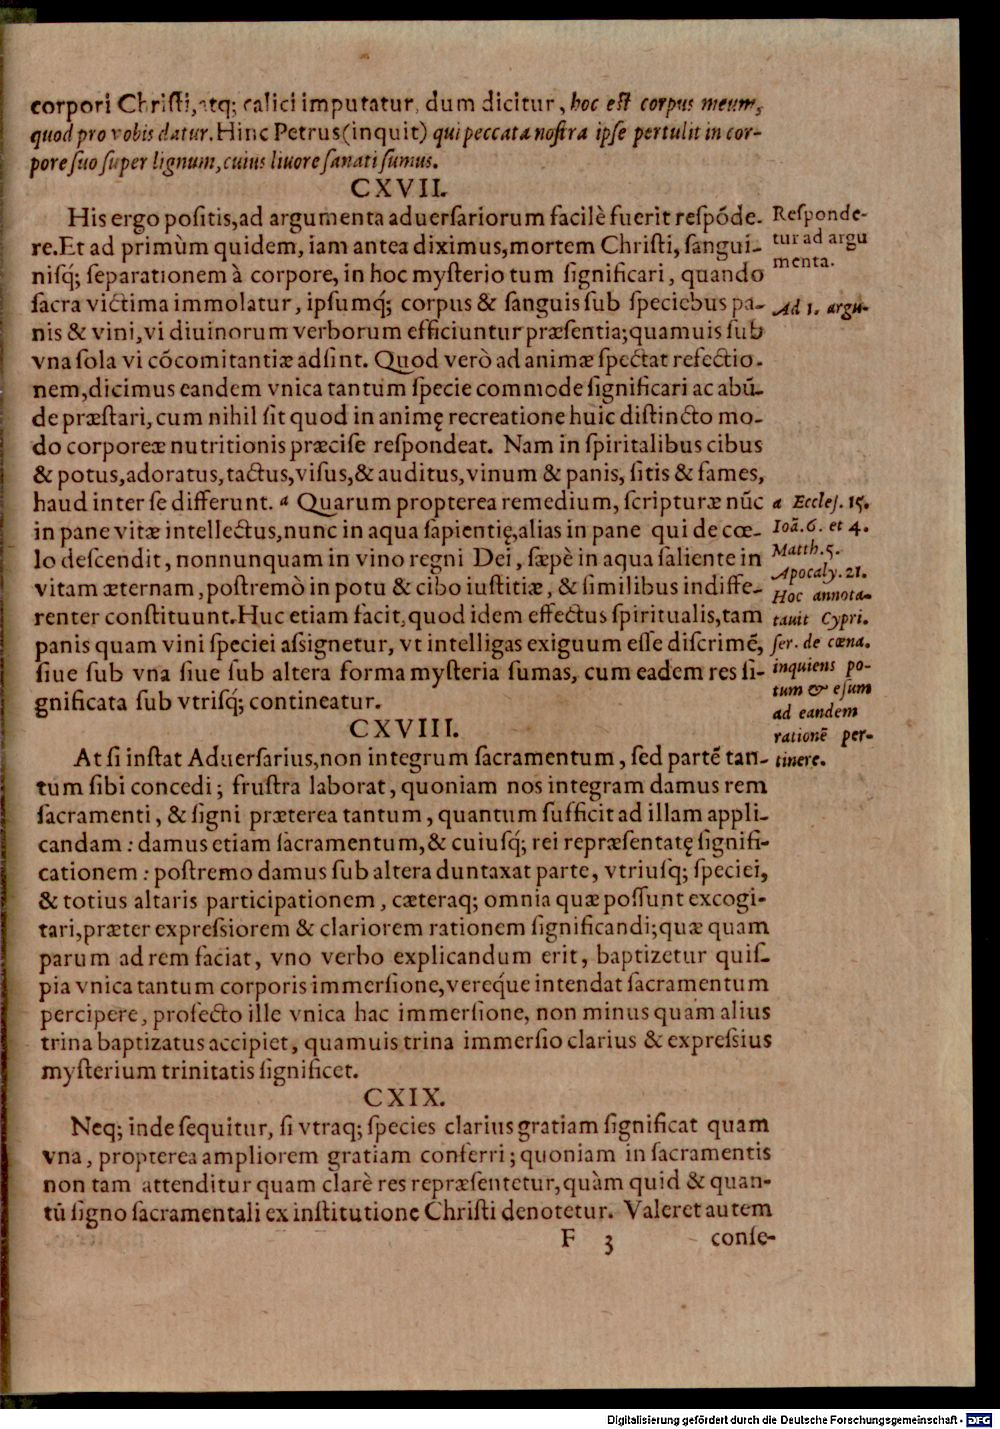 corpori Chriſti, atq; calici imputatur, dum dicitur, hoc eſt corpus meum,
quod pro vobis datur. Hinc Petrus (inquit) qui peccata noſtra ipſe pertulit in cor-
pore ſuo ſuper lignum, cuius liuore ſanati ſumus.
CXVII.
His ergo poſitis, ad argumenta aduerſariorum facilè fuerit reſpõde-
re. Et ad primùm quidem, iam antea diximus, mortem Chriſti, ſangui-
niſq́; ſeparationem à corpore, in hoc myſterio tum ſignificari, quando
ſacra victima immolatur, ipſumq́; corpus & ſanguis ſub ſpeciebus pa-
nis & vini, vi diuinorum verborum efficiuntur præſentia; quamuis ſub
vna ſola vi cõcomitantiæ adſint. Quod verò ad animæ ſpectat refectio-
nem, dicimus eandem vnica tantum ſpecie commode ſignificari ac abũ-
de præſtari, cum nihil ſit quod in animę recreatione huic diſtincto mo-
do corporeæ nutritionis præciſe reſpondeat. Nam in ſpiritalibus cibus
& potus, adoratus, tactus, viſus, & auditus, vinum & panis, ſitis & fames,
haud inter ſe differunt. a Quarum propterea remedium, ſcripturæ nũc
in pane vitæ intellectus, nunc in aqua ſapientię, alias in pane qui de cœ-
lo deſcendit, nonnunquam in vino regni Dei, ſæpè in aqua ſaliente in
vitam æternam, poſtremò in potu & cibo iuſtitiæ, & ſimilibus indiffe-
renter conſtituunt. Huc etiam facit, quod idem effectus ſpiritualis, tam
panis quam vini ſpeciei aſsignetur, vt intelligas exiguum eſſe diſcrimẽ,
ſiue ſub vna ſiue ſub altera forma myſteria ſumas, cum eadem res ſi-
gnificata ſub vtriſq́; contineatur.
Reſponde-
tur ad argu
menta.
Ad 1. argu-
a Eccleſ. 15.
Ioã. 6. et 4.
Matth. 5.
Apocaly. 21.
Hoc annota-
tauit Cypri.
ſer. de cœna.
inquiens po-
tum & eſum
ad eandem
rationẽ per-
tinere.
CXVIII.
At ſi inſtat Aduerſarius, non integrum ſacramentum, ſed partẽ tan-
tum ſibi concedi; fruſtra laborat, quoniam nos integram damus rem
ſacramenti, & ſigni præterea tantum, quantum ſufficit ad illam appli-
candam: damus etiam ſacramentum, & cuiuſq́; rei repræſentatę ſignifi-
cationem: poſtremo damus ſub altera duntaxat parte, vtriuſq; ſpeciei,
& totius altaris participationem, cæteraq; omnia quæ poſſunt excogi-
tari, præter expreſsiorem & clariorem rationem ſignificandi; quæ quam
parum ad rem faciat, vno verbo explicandum erit, baptizetur quiſ-
pia vnica tantum corporis immerſione, vereq́ue intendat ſacramentum
percipere, profecto ille vnica hac immerſione, non minus quam alius
trina baptizatus accipiet, quamuis trina immerſio clarius & expreſsius
myſterium trinitatis ſignificet.
CXIX.
Neq; inde ſequitur, ſi vtraq; ſpecies clarius gratiam ſignificat quam
vna, propterea ampliorem gratiam conferri; quoniam in ſacramentis
non tam attenditur quam clarè res repræſentetur, quàm quid & quan-
tũ ſigno ſacramentali ex inſtitutione Chriſti denotetur. Valeret autem
F 3 conſe-
Digitalisierung gefördert durch die Deutsche Forschungsgemeinschaft - DFG